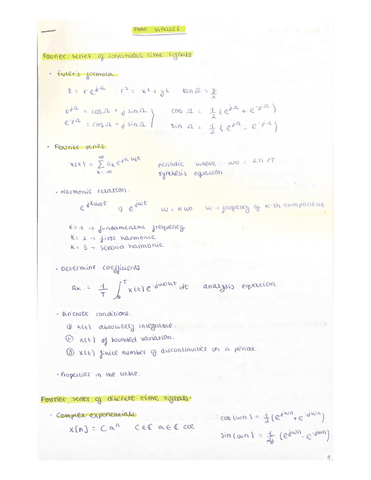 Fourier series of continuous time signals
· Euler's formula
z = r e^jΩ   r² = x² + y²   tan Ω = y/x
e^jΩ = cos Ω + j sin Ω
e^-jΩ = cos Ω - j sin Ω
cos Ω = 1/2 (e^jΩ + e^-jΩ)
sin Ω = 1/2 (e^jΩ - e^-jΩ)
· Fourier series
x(t) = ∞ Σ k=-∞ ak e^jkω0t   periodic where ω0 = 2π/T
synthesis equation
· Harmonic relation
e^jkω0t   e^jωt   ω = kω0   ω → frequency of k-th component
k = 1 → fundamental frequency
k = 2 → first harmonic
k = 3 → second harmonic
· Determine coefficients
ak = 1/T ∫ 0 T x(t) e^-jω0kt dt   analysis equation
· conditions:
① x(t) absolutely integrable.
② x(t) of bounded variation.
③ x(t) finite number of discontinuities on a period.
· Properties in the table.
Fourier series of discrete time signals
· Complex exponentials
x[n] = C aⁿ
cos(ωn) = 1/2 (e^jωn + e^-jωn)
sin(ωn) = (e^jωn - e^-jωn)
1